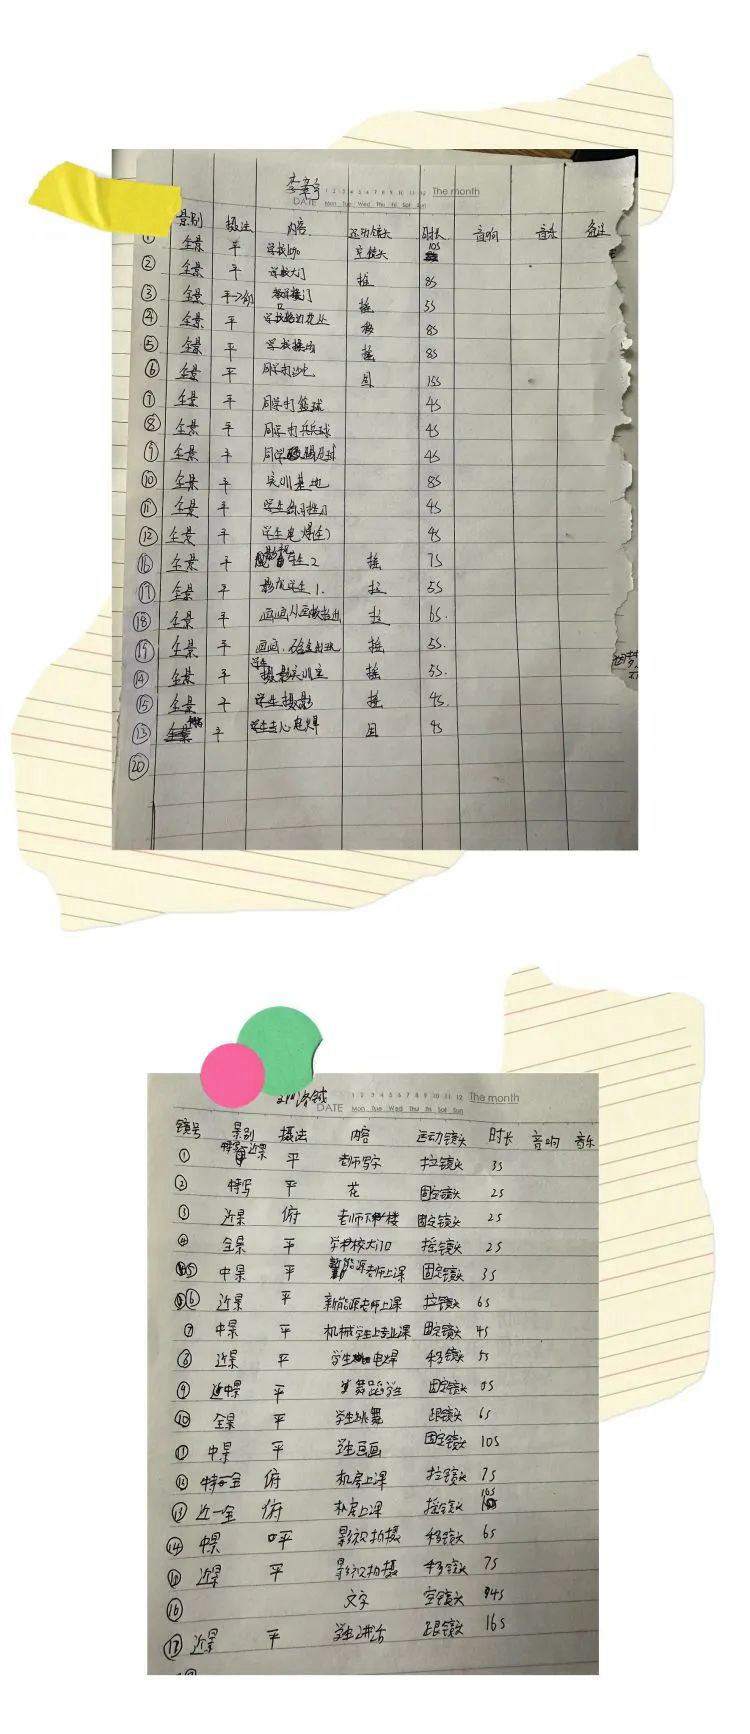 1 2 3 4 5 6 7 8 9 10 11 12 The month
DATE Mon Tue Wed Thu Fri Sat Sun
景别 摄法 内容 运动镜头 时长 音响 音乐 备注
① 全景 平 空镜头 10s
② 全景 平 学校大门 摇 8s
③ 全景 平→仰 教学楼门 摇 5s
④ 全景 平 花丛 移 8s
⑤ 全景 平 学校操场 摇 8s
⑥ 全景 平 同学打 固 15s
⑦ 全景 平 同学打篮球 4s
⑧ 全景 平 同学打乒乓球 4s
⑨ 全景 平 同学踢足球 4s
⑩ 全景 平 实训基地 8s
⑪ 全景 平 学生练习 4s
⑫ 全景 平 学生电焊 4s
⑯ 全景 平 影视学生2 摇 7s
⑰ 全景 平 影视学生1. 拉 5s
⑱ 全景 平 画画从画 拉 6s.
⑲ 全景 平 画画. 摇 5s.
⑭ 全景 平 学生摄影实训室 摇 5s.
⑮ 全景 平 学生摄影 摇 4s.
⑬ 平 学生 电焊 固 4s
⑳
1 2 3 4 5 6 7 8 9 10 11 12 The month
DATE Mon Tue Wed Thu Fri Sat Sun
镜号 景别 摄法 内容 运动镜头 时长 音响 音乐
① 近景 平 老师写字 拉镜头 3s
② 特写 平 花 固定镜头 2s
③ 近景 俯 老师下楼 固定镜头 2s
④ 全景 平 学校大门口 摇镜头 2s
⑤ 中景 平 新能源老师上课 固定镜头 3s
⑥ 近景 平 新能源老师上课 拉镜头 6s
⑦ 中景 平 机械学生上专业课 固定镜头 4s
⑧ 近景 平 学生电焊 移镜头 5s
⑨ 中景 平 舞蹈学生 固定镜头
⑩ 全景 平 学生跳舞 跟镜头 6s
⑪ 中景 平 学生画画 固定镜头 10s
⑫ 特—全 俯 机房上课 拉镜头 7s
⑬ 近—全 俯 机房上课 摇镜头 16s
⑭ 中景 平 影视拍摄 移镜头 6s
近景 平 影视拍摄 移镜头 7s
⑯ 文字 空镜头 4s
⑰ 近景 平 学生讲话 跟镜头 16s